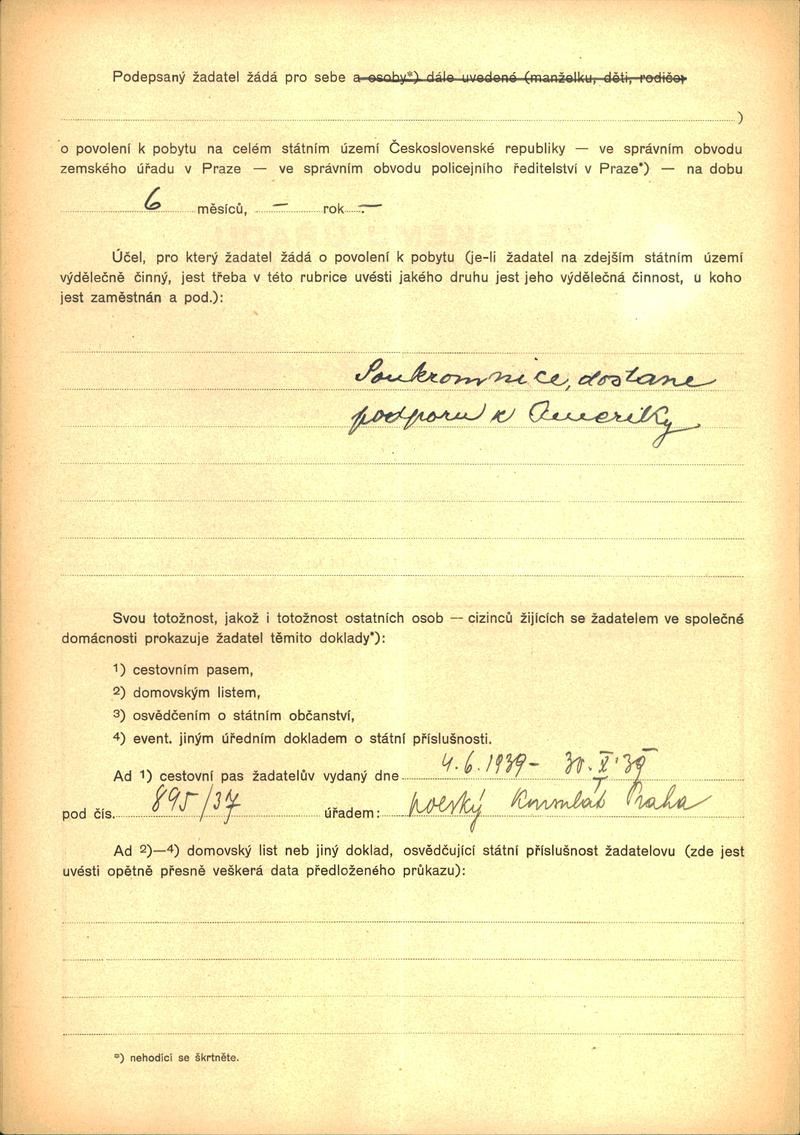 Podepsaný žadatel žádá pro sebe a osoby*) dále uvedené (manželku, děti, rodiče)
)
o povolení k pobytu na celém státním území Československé republiky — ve správním obvodu
zemského úřadu v Praze — ve správním obvodu policejního ředitelství v Praze*) — na dobu
6 měsíců, — rok —
Účel, pro který žadatel žádá o povolení k pobytu (je-li žadatel na zdejším státním území
výdělečně činný, jest třeba v této rubrice uvésti jakého druhu jest jeho výdělečná činnost, u koho
jest zaměstnán a pod.):
Soukromnice, dostane
podporu z Ameriky
Svou totožnost, jakož i totožnost ostatních osob — cizinců žijících se žadatelem ve společné
domácnosti prokazuje žadatel těmito doklady*):
1) cestovním pasem,
2) domovským listem,
3) osvědčením o státním občanství,
4) event. jiným úředním dokladem o státní příslušnosti.
Ad 1) cestovní pas žadatelův vydaný dne 4.6.1939 - 30.X.39
pod čís. 895/37 úřadem: polský konsulát Praha
Ad 2)—4) domovský list neb jiný doklad, osvědčující státní příslušnost žadatelovu (zde jest
uvésti opětně přesně veškerá data předloženého průkazu):
*) nehodící se škrtněte.